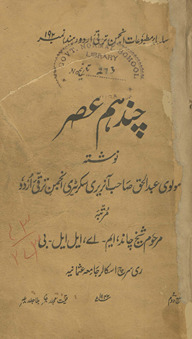 سلسلہ مطبوعات انجمن ترقی اردو (ہند) نمبر ۱۹۲
GOVT. SCHOOL
LIBRARY
273
چند ہم عصر
نوشتہ
مولوی عبدالحق صاحب آنریری سکریٹری انجمن ترقی اردو
مرتبہ
مرحوم شیخ چاند، ایم-اے، ایل ایل-بی
ری سرچ اسکالر جامعہ عثمانیہ